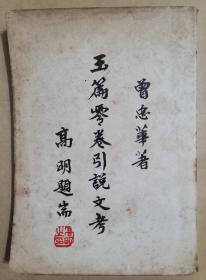 曾忠華著
玉篇零卷引說文考
高明題耑